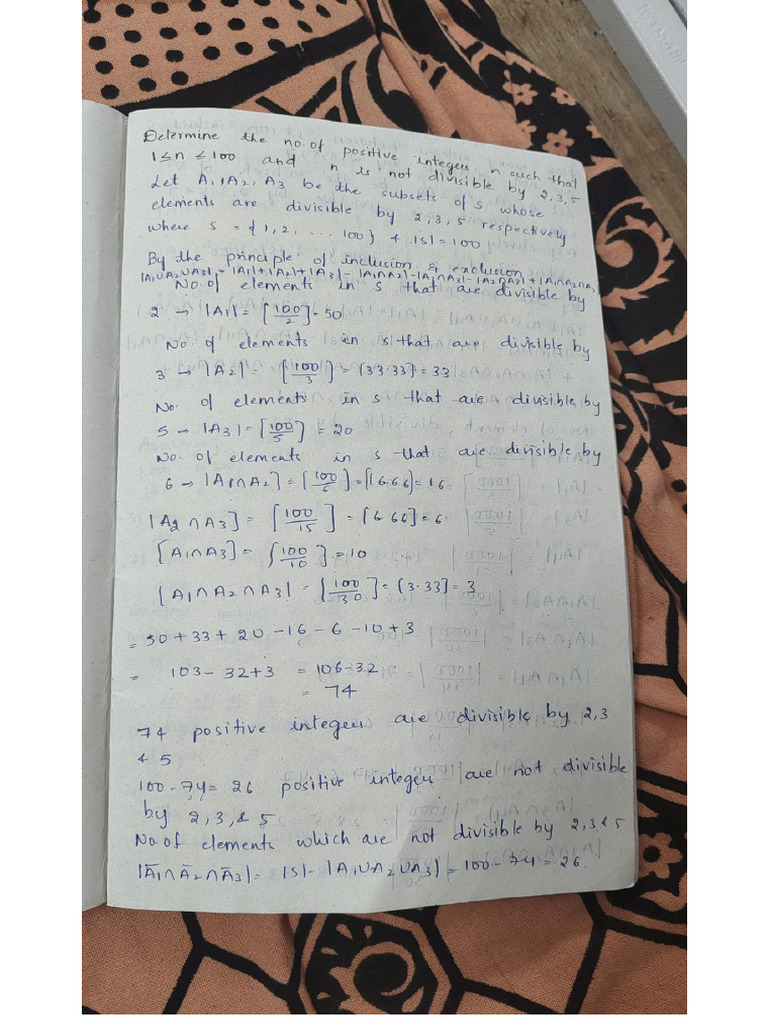 Determine the no. of positive integers n such that
1 ≤ n ≤ 100 and n is not divisible by 2,3,5
Let A1, A2, A3 be the subsets of s whose
elements are divisible by 2,3,5 respectively
where S = {1, 2, ... 100} & |S| = 100
By the principle of inclusion & exclusion
|A1∪A2∪A3| = |A1|+|A2|+|A3|-|A1∩A2|-|A1∩A3|-|A2∩A3|+|A1∩A2∩A3
No. of elements in s that are divisible by
2 → |A1| = [100/2] = 50
No. of elements in s that are divisible by
3 → |A2| = [100/3] = [33.33] = 33
No. of elements in s that are divisible by
5 → |A3| = [100/5] = 20
No. of elements in s that are divisible by
6 → |A1∩A2] = [100/6] = [16.66] = 16
|A2∩A3] = [100/15] = [6.66] = 6
[A1∩A3] = [100/10] = 10
[A1∩A2∩A3| = [100/30] = [3.33] = 3
= 50 + 33 + 20 - 16 - 6 - 10 + 3
= 103 - 32 + 3 = 106 - 32
= 74
74 positive integers are divisible by 2,3
& 5
100 - 74 = 26 positive integers are not divisible
by 2, 3, & 5
No. of elements which are not divisible by 2,3 & 5
|Ā1∩Ā2∩Ā3| = |S| - |A1∪A2∪A3| = 100 - 74 = 26.